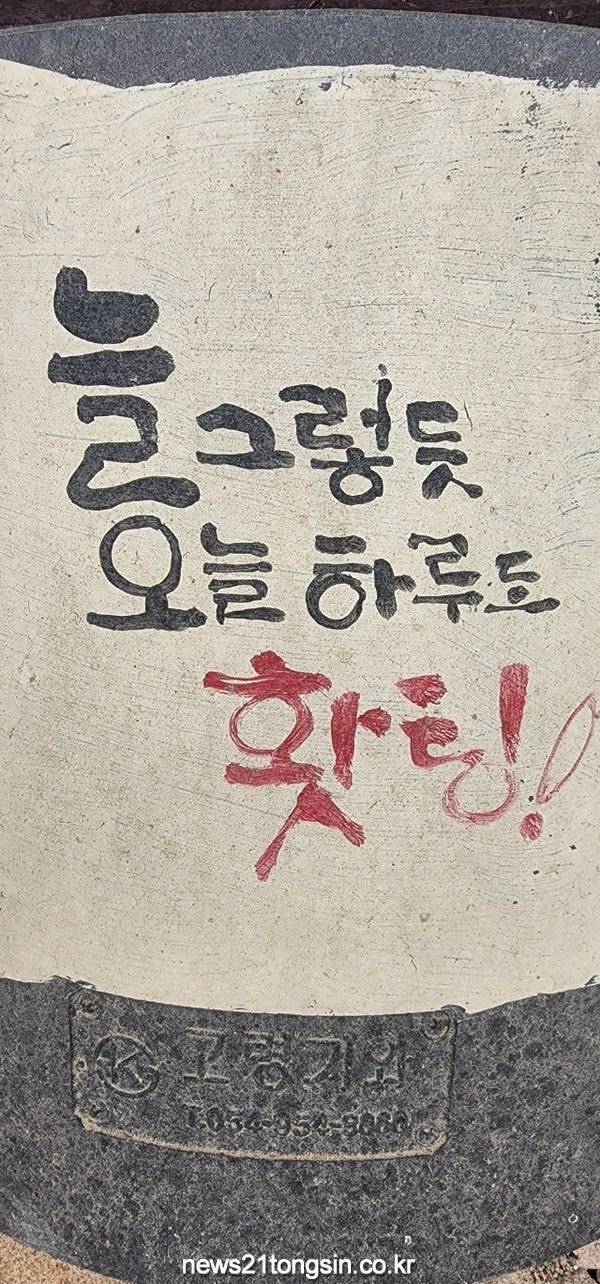 늘 그렇듯
오늘 하루도
홧팅!
고령기와
T.054-954-8080
news21tongsin.co.kr